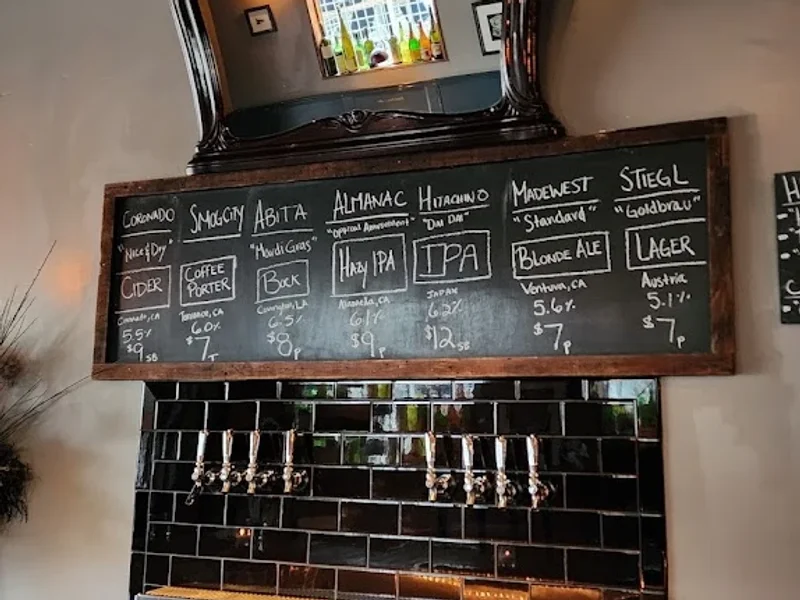 CORONADO
"Nice & Dry"
CIDER
Coronado, CA
5.5%
$9 SB
SMOGCITY
COFFEE
PORTER
Torrance, CA
6.0%
$7 T
ABITA
"Mardi Gras"
BOCK
Covington, LA
6.5%
$8 P
ALMANAC
"Optical Amusement"
HAZY IPA
Alameda, CA
6.1%
$9 P
HITACHINO
"Dai Dai"
IPA
JAPAN
6.2%
$12 SB
MADEWEST
"Standard"
BLONDE ALE
Ventura, CA
5.6%
$7 P
STIEGL
"Goldbräu"
LAGER
Austria
5.1%
$7 P
H